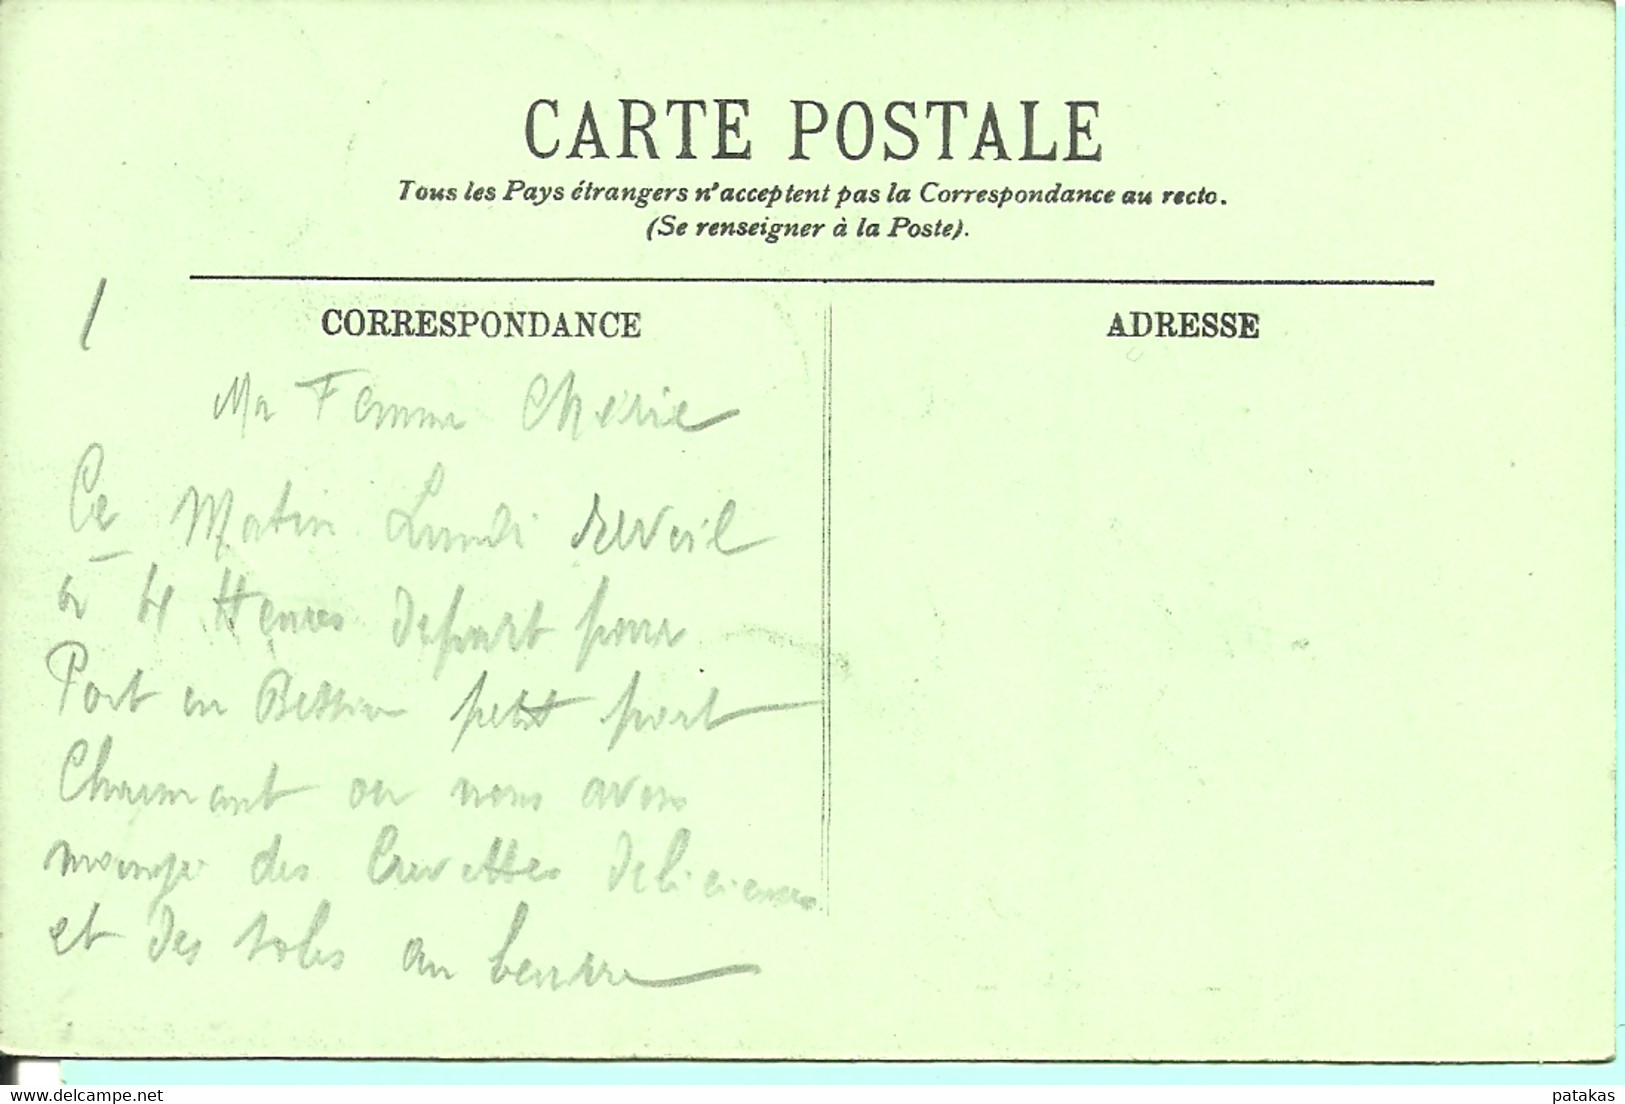 CARTE POSTALE
Tous les Pays étrangers n'acceptent pas la Correspondance au recto.
(Se renseigner à la Poste).
1
CORRESPONDANCE
ADRESSE
Ma Femme Cherie
Ce Matin Lundi reveil
a 4 Heures depart pour
Port en Bessin petit port
Charmant ou nous avons
mange des Crevettes delicieuses
et des soles au beurre
delcampe.net
patakas